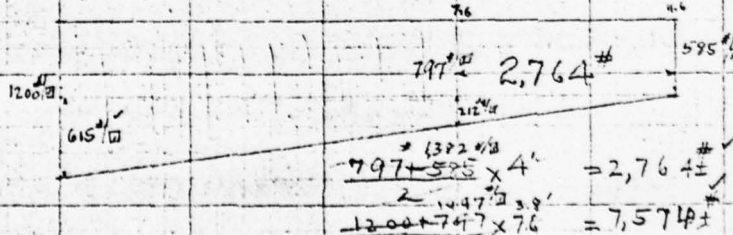 7.6 11.6
585 #/
797 #/□ 2,764 #
1200 #/□
212 #/□
615 #/□
1,382 #/□
797 + 585 × 4' = 2,764 ± #
2
1997 #/□ 3.8'
1200 + 797 × 7.6 = 7,574 ± #